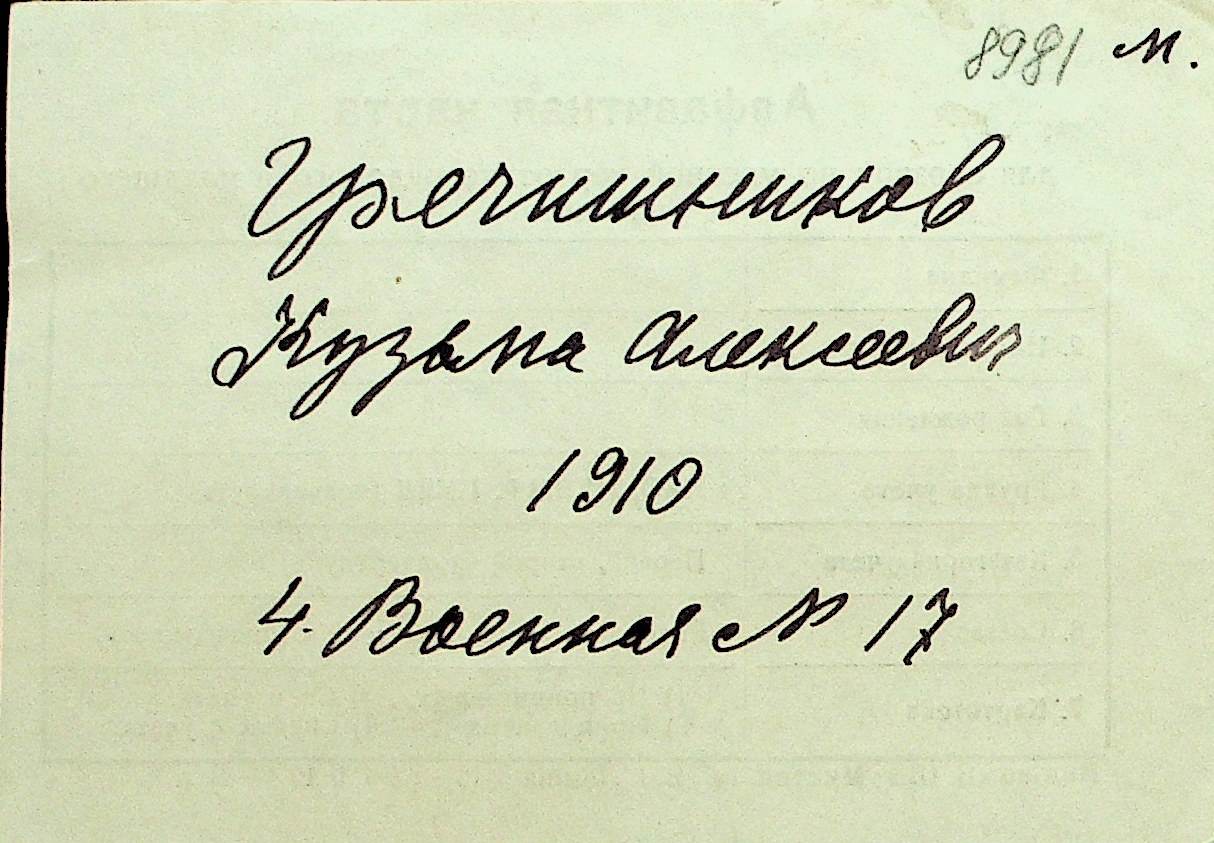 8981 м.
Гречишников
Кузьма Алексеевич
1910
4. Военная № 17